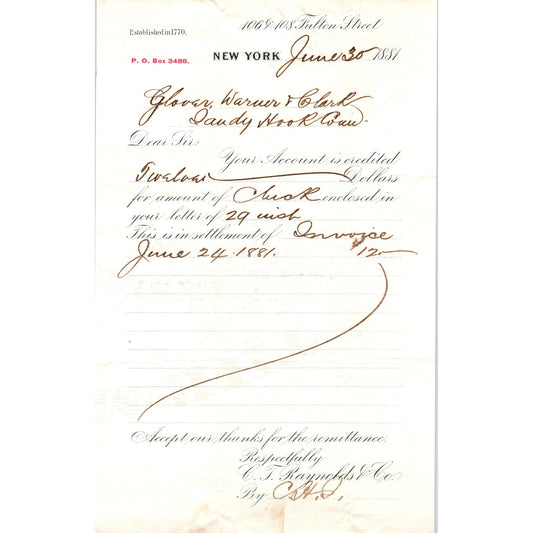 106 & 108 Fulton Street
Established in 1770.
P. O. Box 3488. NEW YORK June 30 1881
Glover, Warner & Clark
Sandy Hook Conn.
Dear Sir:
Your Account is credited
Twelve Dollars
for amount of Check enclosed in
your letter of 29 inst
This is in settlement of Invoice
June 24. 1881. $12.—
Accept our thanks for the remittance.
Respectfully
C. T. Raynolds & Co.
By